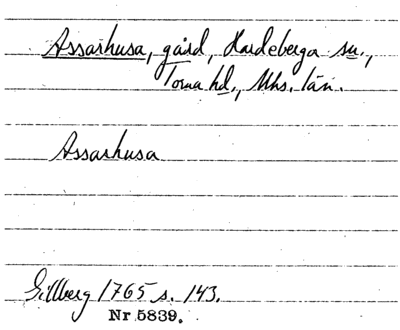 Assarhusa, gård, Hardeberga sn.,
Torna hd., Mhs. län.
Assarhusa
Gillberg 1765 s. 143.
Nr 5839.